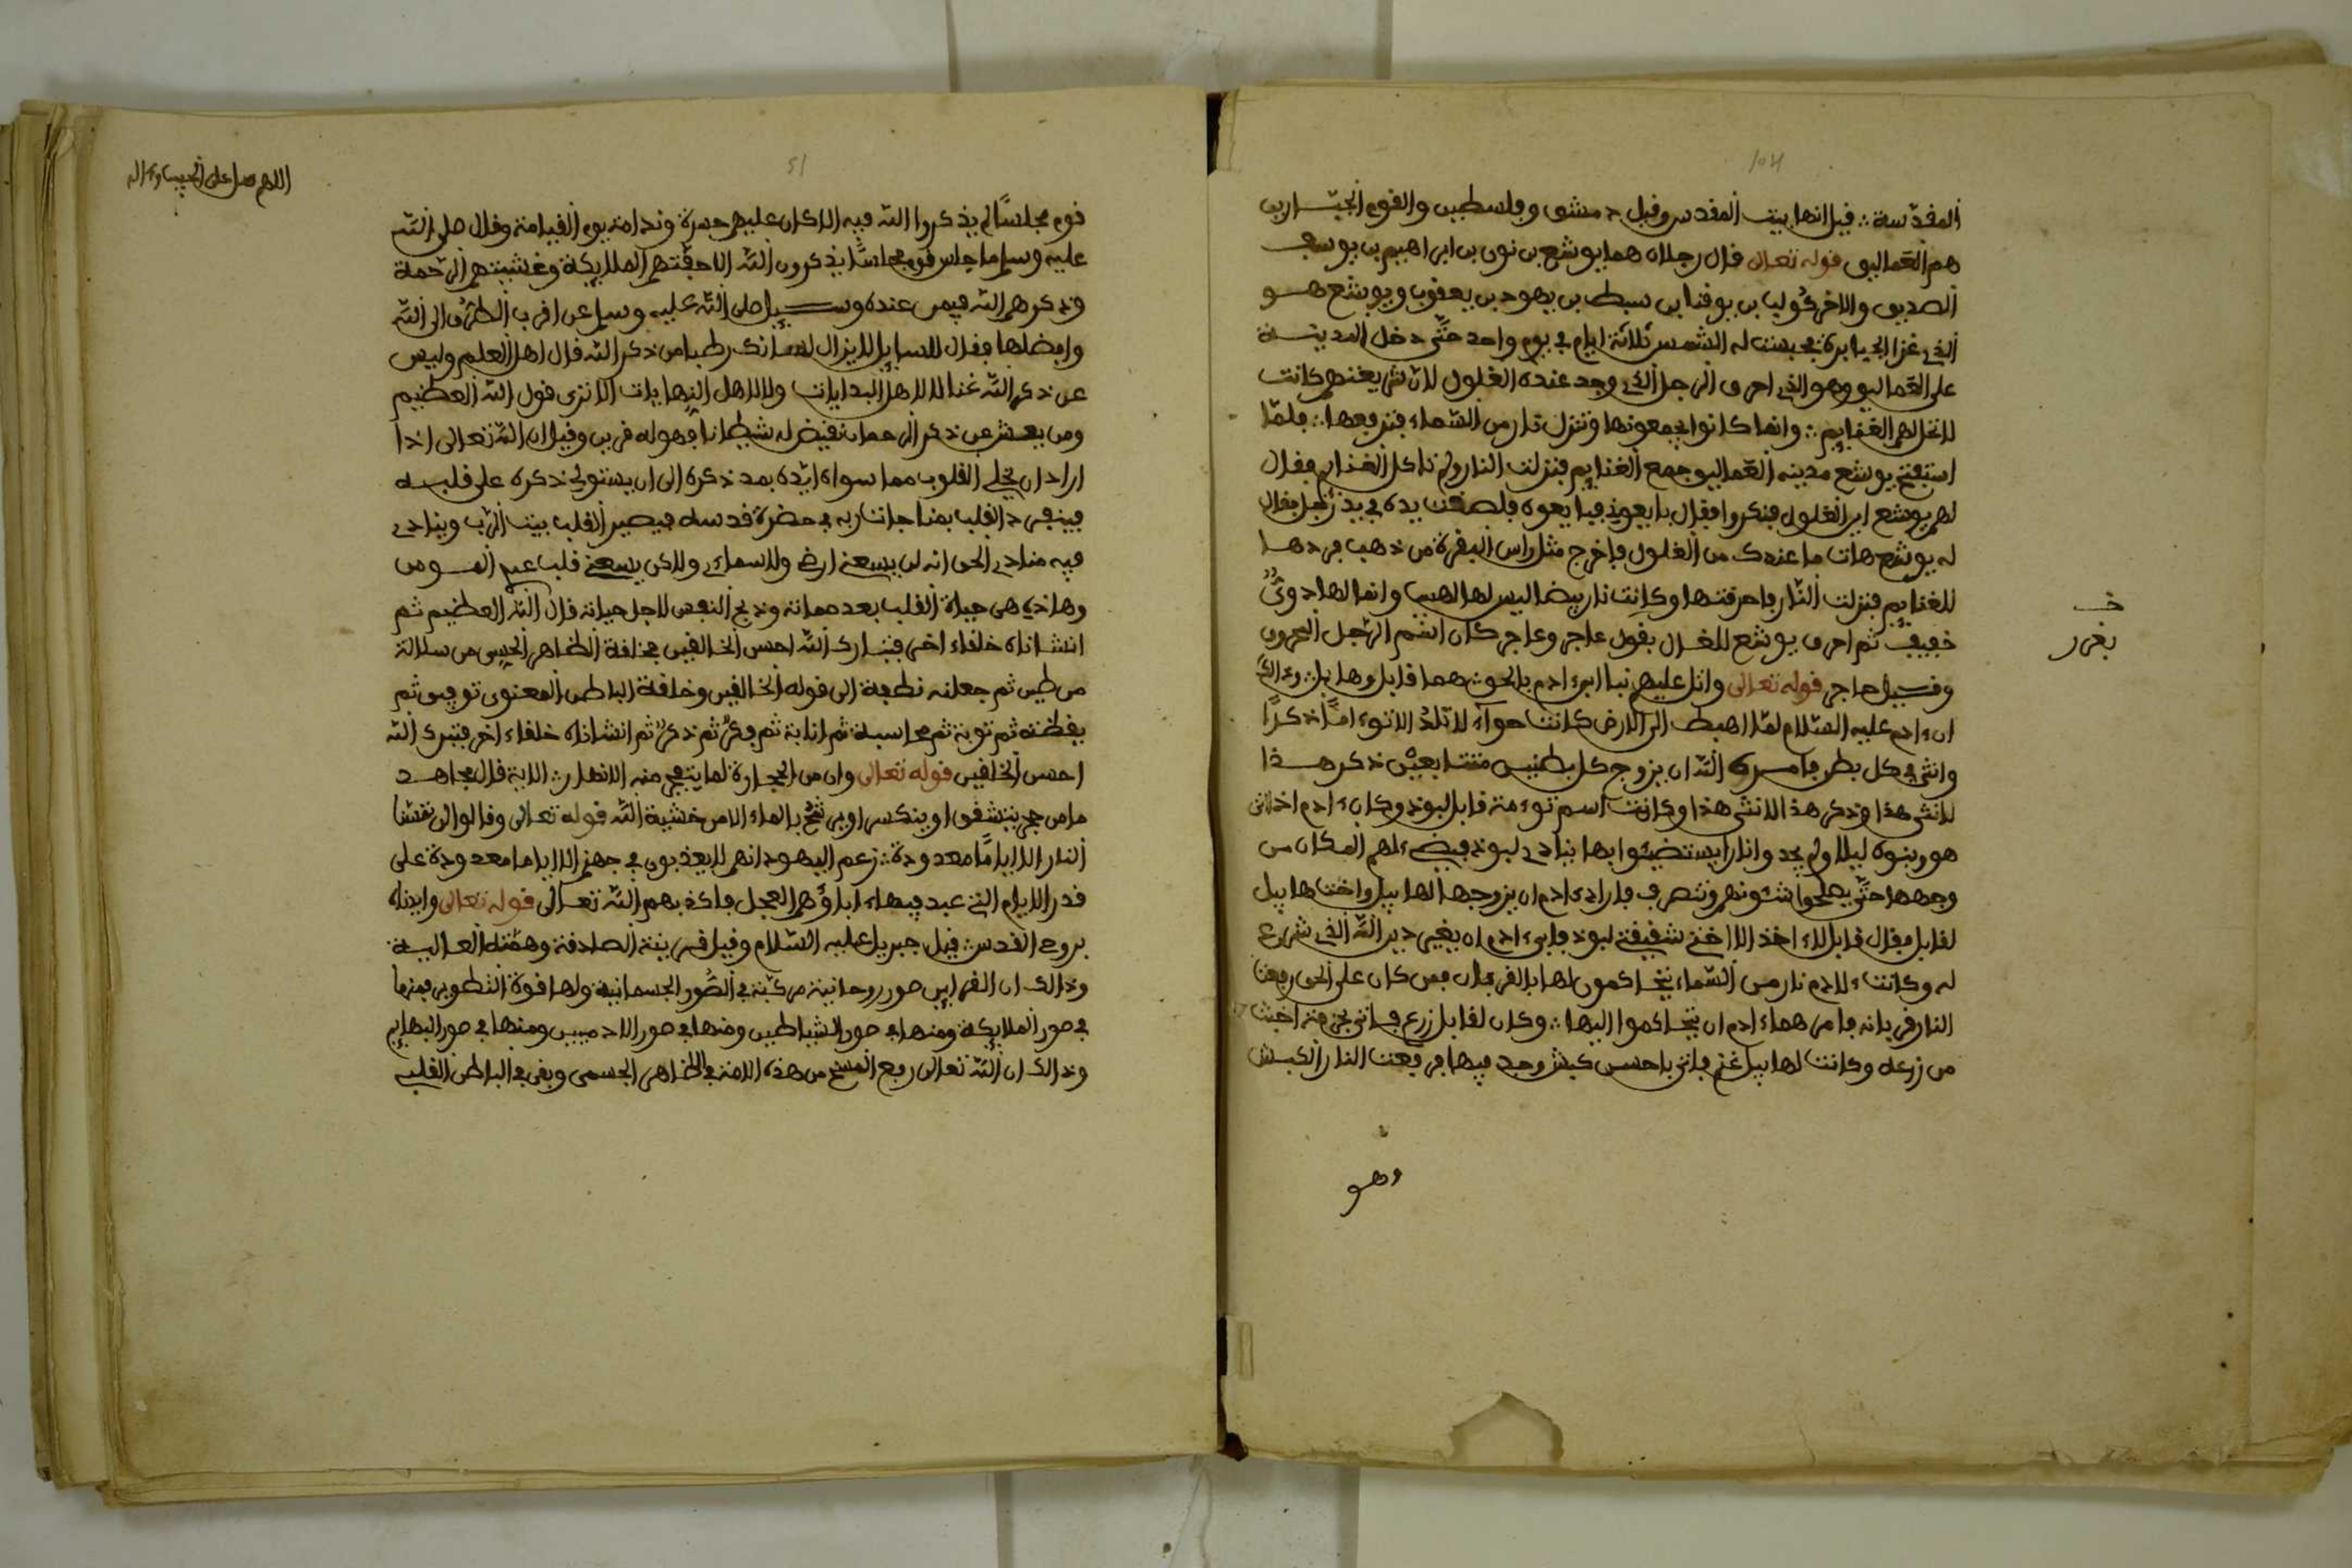 104
المقدّسة ؞ فيل انها بيت المقدس وقيل دمشق وفلسطين والقوم الجبّارين
هم العَمالين قوله تعالى قال رجلان هما يوشع بن نون بن ابراهيم بن يوسف
الصديق والاخر كُوليا بن يوفنا بن سبط بن يهود بن يعقوب ويوشع هو
الذي غزا الجبابرة فحبست له الشمس ثلاثة ايام في يوم واحد حتّى دخل المدينة
على العَماليق وهو الذي احرق الرجل الذي وجد عنده الغلول لان يغنم كانت
لا تحل لهم الغنايم ؞ وانما كانوا يجمعونها وتنزل نار من السّماء فترفعها ؞ فلمّا
استفتح يوشع مدينه العَماليق وجمع الغنايم فنزلت النار ولم تاكل الغنايم فقال
لهم يوشع اين الغلول فنكروا فقال بايعوني فبايعوه فلصقت يده في يد رجل فقال
له يوشع هات ما عندك من الغلول فاخرج مثل راس البقرة من ذهب فردها
للغنايم فنزلت النّار فاحرقتها وكانت نار بيضا ليس لها لهيب وانما لها دويّ
خفيف ثم احرق يوشع للغال بقول عاجر وعاجر كان اسم الرّجل المحروق
وقيل عاجر قوله تعالى واتل عليهم نبا ابني ادم بالحق هما قابل وهابيل وذالك
ان ءادم عليه السّلام لمّا اهبط الى الارض كانت حوآء لا تلدُ الا توءامًا ذكرًا
وانثى في كل بطن فامره الله ان يزوج كل بطنين متتابعين ذكر هذا
لانثى هذا وذكر هذا لانثى هذا وكانت اسم توءمة قابل لبوذ وكان ءادم اذا اتى
هو وبنوه ليلا ولم يجدوا نارا يستضيئوا بها ينادي لبوذ فيضيء لهم المكان من
وجهها حتّى يصلحوا شئونهم وتنصرف فاراد ءادم ان يزوجها لهابيل واخت هابيل
لقابل فقال قابل لاء اخذ الا اختي شقيقتي لبوذ فابىء ادم ان يغير دين الله الذي شرع
له وكانت ءلادم نار من السّماء يتحاكمون لها بالقربان فمن كان على الحق رفعت
النار قربانه فامرهما ءادم ان يتحاكموا اليها ؞ وكان لقابل زرع فاتى بحزمة اخبث
من زرعه وكانت لهابيل غنم فاتى باحسن كبش وجد فيها فرفعت النار الكبش
وهو
خ
بغرر
51
اللهم صل على الحبيب واله
قوم مجلسًا لم يذكروا الله فيه الا كان عليهم حسرة وندامة يوم القيامة وقال صلى الله
عليه وسلم ما جلس قوم مجلسًا يذكرون الله الا حفّتهم الملايكة وغشيتهم الرّحمة
وذكرهم الله فيمن عنده وسيل صلى الله عليه وسلم عن اقرب الطرُق الى الله
وافضلها فقال للسايل لا يزال لسانك رطبا من ذكر الله قال اهل العلم وليس
عن ذكر الله غنا لا لاهل البدايات ولا لاهل النهايات الا ترى قول الله العظيم
ومن يعش عن ذكر الرحمان نقيض له شيطانا فهو له قرين وقيل ان الله تعالى اذا
اراد ان يخلي القلوب مما سواه ايّده بمد ذكره الى ان يستولي ذكره على قلبه
فينفرد القلب بمناجات ربه في حضرة قدسه فيصير القلب بيت الرّب وينادى
فيه منادي الحق انه لن يسعني ارضي ولا سماءي ولاكن يسعني قلب عبدي المومن
وهاذي هي حياة القلب بعد مماته وذبح النفس لاجل حياته قال الله العظيم ثم
انشاناه خلقاء اخر فتبارك الله احسن الخالقين فخلقة الظاهر الحسي من سلالة
من طين ثم جعلنه نطفة الى قوله الخالقين وخلقة الباطن المعنوي توفيق ثم
يقظة ثم توبة ثم محاسبة ثم انابة ثم فكرٌ ثم ذكرٌ ثم انشاناه خلقاء اخر فتبرك الله
احسن الخلقين قوله تعالى وان من الحجارة لما يتفجر منه الانهار ؞ الاية قال مجاهد
ما من حجر يتشقق او ينكسر او يرشح بالماء الا من خشية الله قوله تعالى وقالوا لن تمسّنا
النار الا اياما معدودة ؞ زعم اليهود انهم لا يعذبون في جهنم الا اياما معدودة على
قدر الايام التي عبد فيهاء اباؤهم العجل فاكذبهم الله تعالى قوله تعالى وايدناه
بروح القدس قيل جبريل عليه السّلام وقيل قرينته الصادقة وهمّته العالية
وذالك ان القراين صور روحانية مركبة في الصُّور الجسمانية ولها قوة التطوير فمنها
في صور الملايكة ومنها في صور الشياطين ومنها في صور الادميين ومنها في صور البهايم
وذالك ان الله تعالى رفع المسخ من هذه الامة في الظاهر الجسمي وبقي في الباطن القلبي